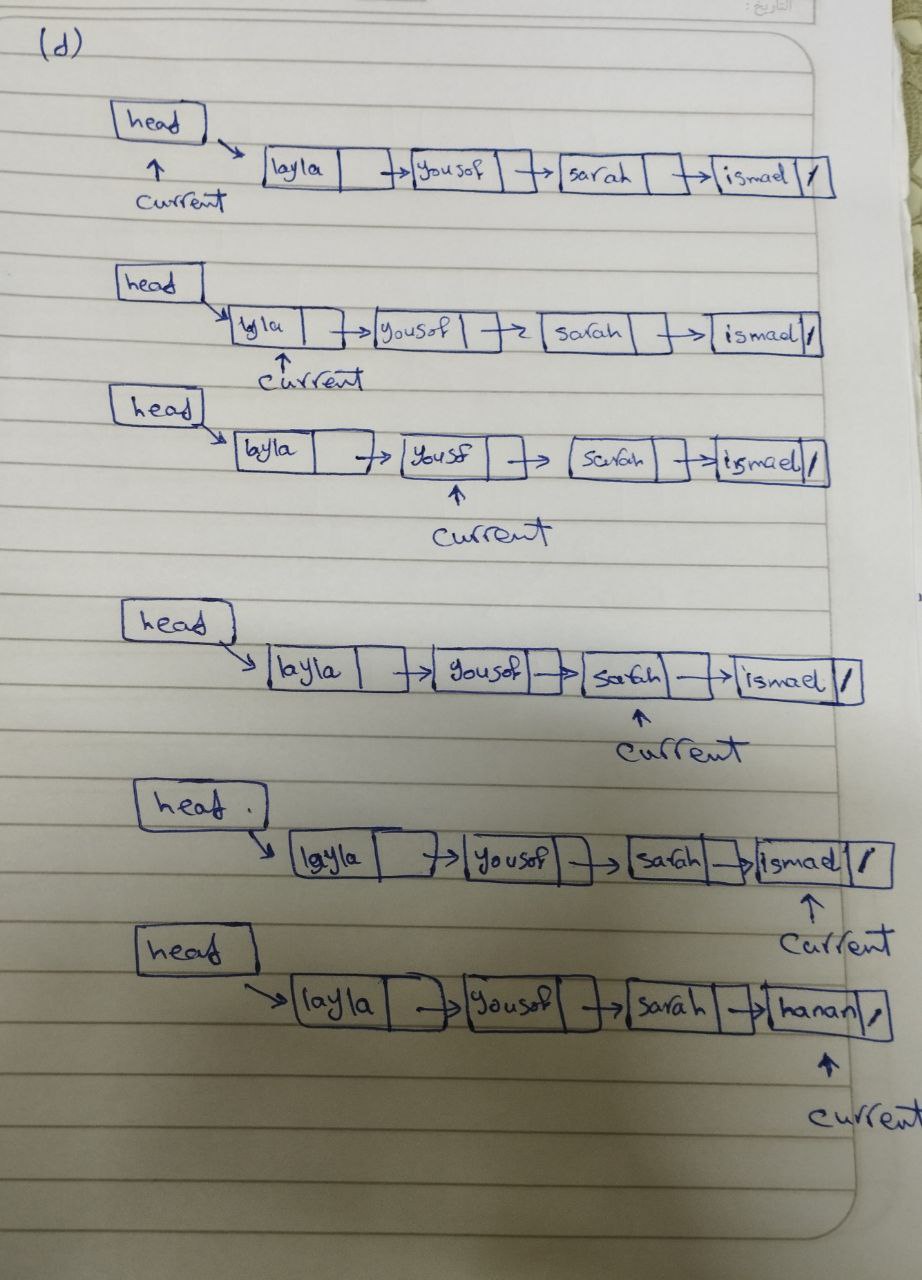 التاريخ :
(d)
head
layla yousof sarah ismael /
current
head
layla yousof sarah ismael /
current
head
layla yousf sarah ismael /
current
head
layla yousof sarah ismael /
current
head .
layla yousof sarah ismael /
current
head
layla yousof sarah hanan /
current